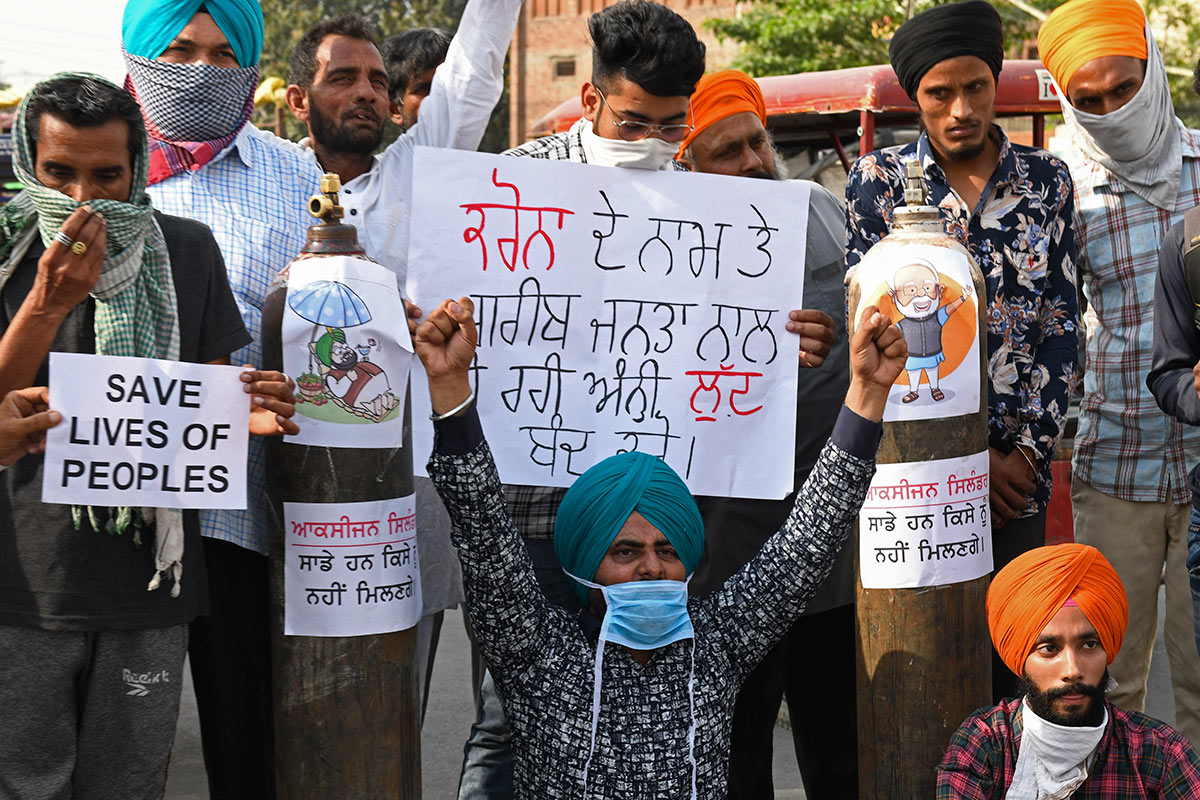 SAVE
LIVES OF
PEOPLES
ਕਰੋਨਾ ਦੇ ਨਾਮ ਤੇ
ਗਰੀਬ ਜਨਤਾ ਨਾਲ
ਹੋ ਰਹੀ ਅੰਨੀ ਲੁੱਟ
ਬੰਦ ਕਰੋ।
ਆਕਸੀਜਨ ਸਿਲੰਡਰ
ਸਾਡੇ ਹਨ ਕਿਸੇ ਨੂੰ
ਨਹੀਂ ਮਿਲਣਗੇ।
ਆਕਸੀਜਨ ਸਿਲੰਡਰ
ਸਾਡੇ ਹਨ ਕਿਸੇ ਨੂੰ
ਨਹੀਂ ਮਿਲਣਗੇ।
Reebok